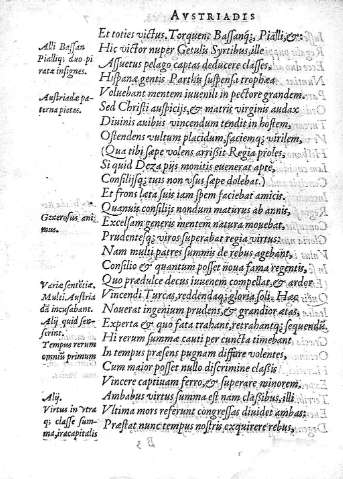 AVSTRIADIS
Et toties victus, Torquent Bassanq;, Pialli, &:
Alli Bassan
Pialliq; duo piratæ insignes.
Hic victor nuper Getulis Syrtibus, ille
Assuetus pelago captas deducere classes,
Hispanæ gentis Parthis suspensa trophæa
Austriadæ paterna pietos.
Voluebant mentem iuuenili in pectore grandem.
Sed Christi auspicijs, & matris virginis audax
Diuinis auibus vincendum tendit in hostem,
Ostendens vultum placidum, faciemq; virilem,
(Qua tibi sæpe volens arrisit Regia proles,
Si quid Deza pijs monitis euenerat aptè,
Consilijsq; tuis non vsus sæpe dolebat.)
Et frons læta suis iam spem faciebat amicis.
Quanuis consilijs nondum maturus ab annis,
Generosus animus.
Excelsam generis mentem natura mouebat,
Prudentesq; viros superabat regia virtus:
Nam multi patres summis de rebus agebant,
Consilio & quantum posset noua fama regentis,
Quo prædulce decus iuuenem compellat, & ardor
Variæ sentētiæ,
Multi Austriadā incusabant.
Alij quid secus scrint.
Tempus rerum omniū primum
Vincendi Turcas, reddendaq; gloria soli. Hæc
Nouerat ingenium prudens, & grandior ætas,
Experta & quo fata trahant, retrahantq; sequendū.
Hi rerum summa cauti per cuncta timebant
In tempus præsens pugnam differre volentes,
Cum maior posset nullo discrimine classis
Vincere captiuam ferro, & superare minorem.
Alij.
Virtus in vtraq; classe summa, ira capitalis
Ambabus virtus summa est nam classibus, illi
Vltima mors referunt congressas diuidet ambas:
Præstat nunc tempus nostris exquirere rebus,